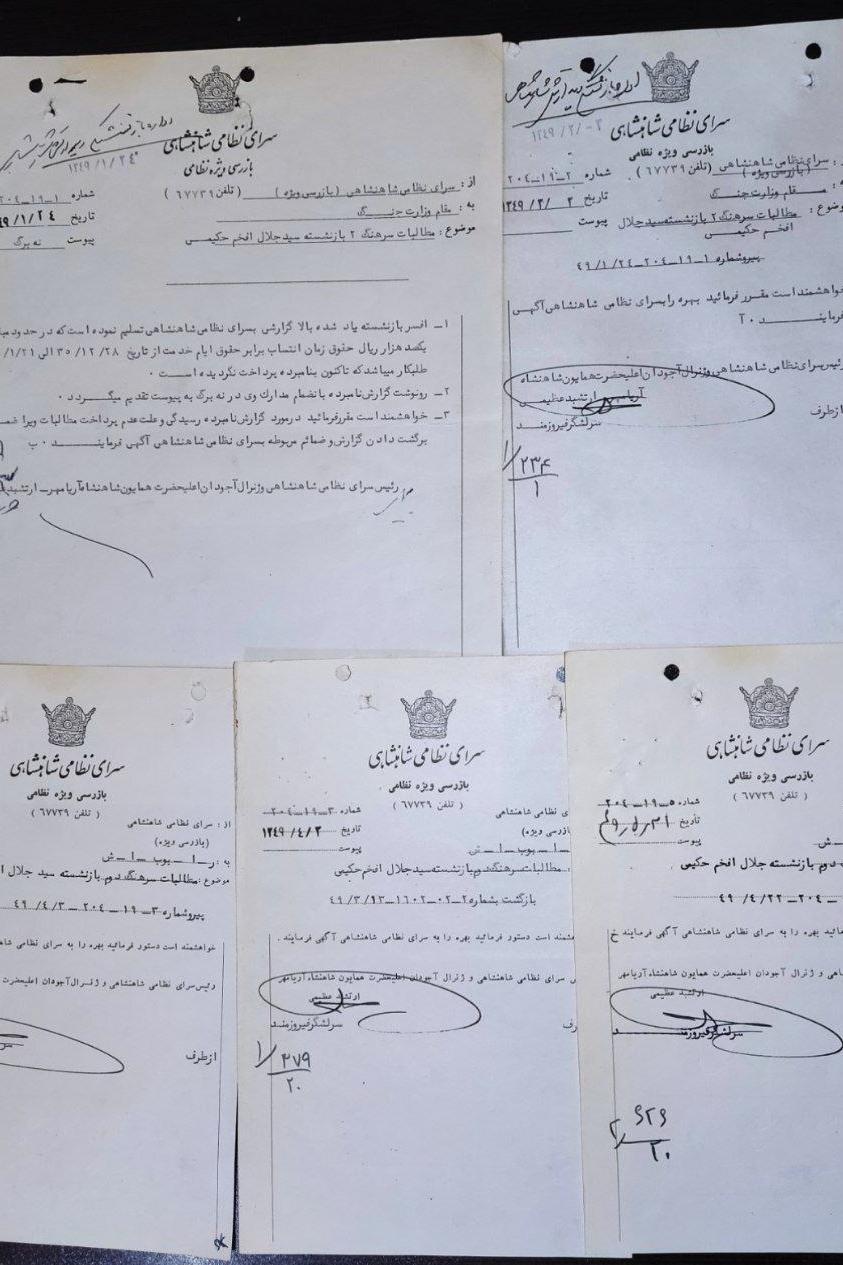 سرای نظامی شاهنشاهی
بازرسی ویژه نظامی
۱۳۴۹/۱/۲۴
از : سرای نظامی شاهنشاهی ( بازرسی ویژه ) ( تلفن ۶۷۷۳۹ )
به : مقام وزارت جنگ
موضوع : مطالبات سرهنگ ۲ بازنشسته سید جلال افخم حکیمی
شماره
تاریخ
پیوست نه برگ
۱ــ افسر بازنشسته یاد شده بالا گزارشی بسرای نظامی شاهنشاهی تسلیم نموده است که در حدود
یکصد هزار ریال حقوق زمان انتساب برابر حقوق ایام خدمت از تاریخ ۳۵/۱۲/۲۸ الی
طلبکار میباشد که تاکنون بنامبرده پرداخت نگردیده است ۰
۲ــ رونوشت گزارش نامبرده با نضمام مدارک وی در نه برگ به پیوست تقدیم میگردد ۰
۳ــ خواهشمند است مقرر فرمائید در مورد گزارش نامبرده رسیدگی و علت عدم پرداخت مطالبات ویرا
برگشت دادن گزارش و ضمائم مربوطه بسرای نظامی شاهنشاهی آگهی فرمایند ۰ ب
رئیس سرای نظامی شاهنشاهی وژنرال آجودان اعلیحضرت همایون شاهنشاه آریامهر ــ ارتشبد
سرای نظامی شاهنشاهی
بازرسی ویژه نظامی
سرای نظامی شاهنشاهی ( تلفن ۶۷۷۳۹ )
( بازرسی ویژه )
مقام وزارت جنگ
مطالبات سرهنگ ۲ بازنشسته سید جلال
افخم حکیمی
شماره ۲ــ۱۹ــ۲۰۴
تاریخ ۱۳۴۹/۲/۲
پیوست
پیرو شماره ۱ــ۱۹ــ۲۰۴ــ۴۹/۱/۲۴
خواهشمند است مقرر فرمائید بهره را بسرای نظامی شاهنشاهی آگهی
فرمایند ۰ آ
رئیس سرای نظامی شاهنشاهی وژنرال آجودان اعلیحضرت همایون شاهنشاه
آریامهر ارتشبد عظیمی
از طرف
سرلشگر فیروزمند
۲۳۴
۱
سرای نظامی شاهنشاهی
بازرسی ویژه نظامی
( تلفن ۶۷۷۳۹ )
از : سرای نظامی شاهنشاهی
(بازرسی ویژه)
موضوع : مطالبات سرهنگ دوم بازنشسته سید جلال
پیرو شماره ۳ــ۱۹ــ۲۰۴ــ۴۹/۴/۳
خواهشمند است دستور فرمائید بهره را به سرای نظامی
رئیس سرای نظامی شاهنشاهی و ژنرال آجودان اعلیحضرت
از طرف
سرای نظامی شاهنشاهی
بازرسی ویژه نظامی
( تلفن ۶۷۷۳۹ )
نظامی شاهنشاهی
(بازرسی ویژه)
شماره ۳ــ۱۹ــ۲۰۴
تاریخ ۱۳۴۹/۴/۳
پیوست
مطالبات سرهنگ دوم بازنشسته سید جلال افخم حکیمی
بازگشت بشماره ۲ــ۰۲ــ۱۶۰۲ــ۴۹/۳/۹۳
دستور فرمائید بهره را به سرای نظامی شاهنشاهی آگهی فرمایند .
سرای نظامی شاهنشاهی و ژنرال آجودان اعلیحضرت همایون شاهنشاه آریامهر
ارتشبد عظیمی
سرلشگر فیروزمند
۲۷۹
۲۰
سرای نظامی شاهنشاهی
بازرسی ویژه نظامی
( تلفن ۶۷۷۳۹ )
شماره ۵ــ۱۹ــ۲۰۴
تاریخ
پیوست
دوم بازنشسته جلال افخم حکیمی
ــ۲۰۴ــ۴۹/۴/۲۲
بهره را به سرای نظامی شاهنشاهی آگهی فرمایند خ
و ژنرال آجودان اعلیحضرت همایون شاهنشاه آریامهر
ارتشبد عظیمی
سرلشگر فیروزمند